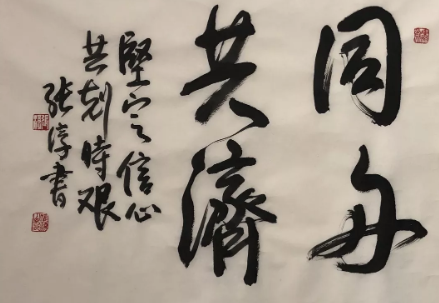 同舟
共濟
堅定信心
共剋時艱
張淳書